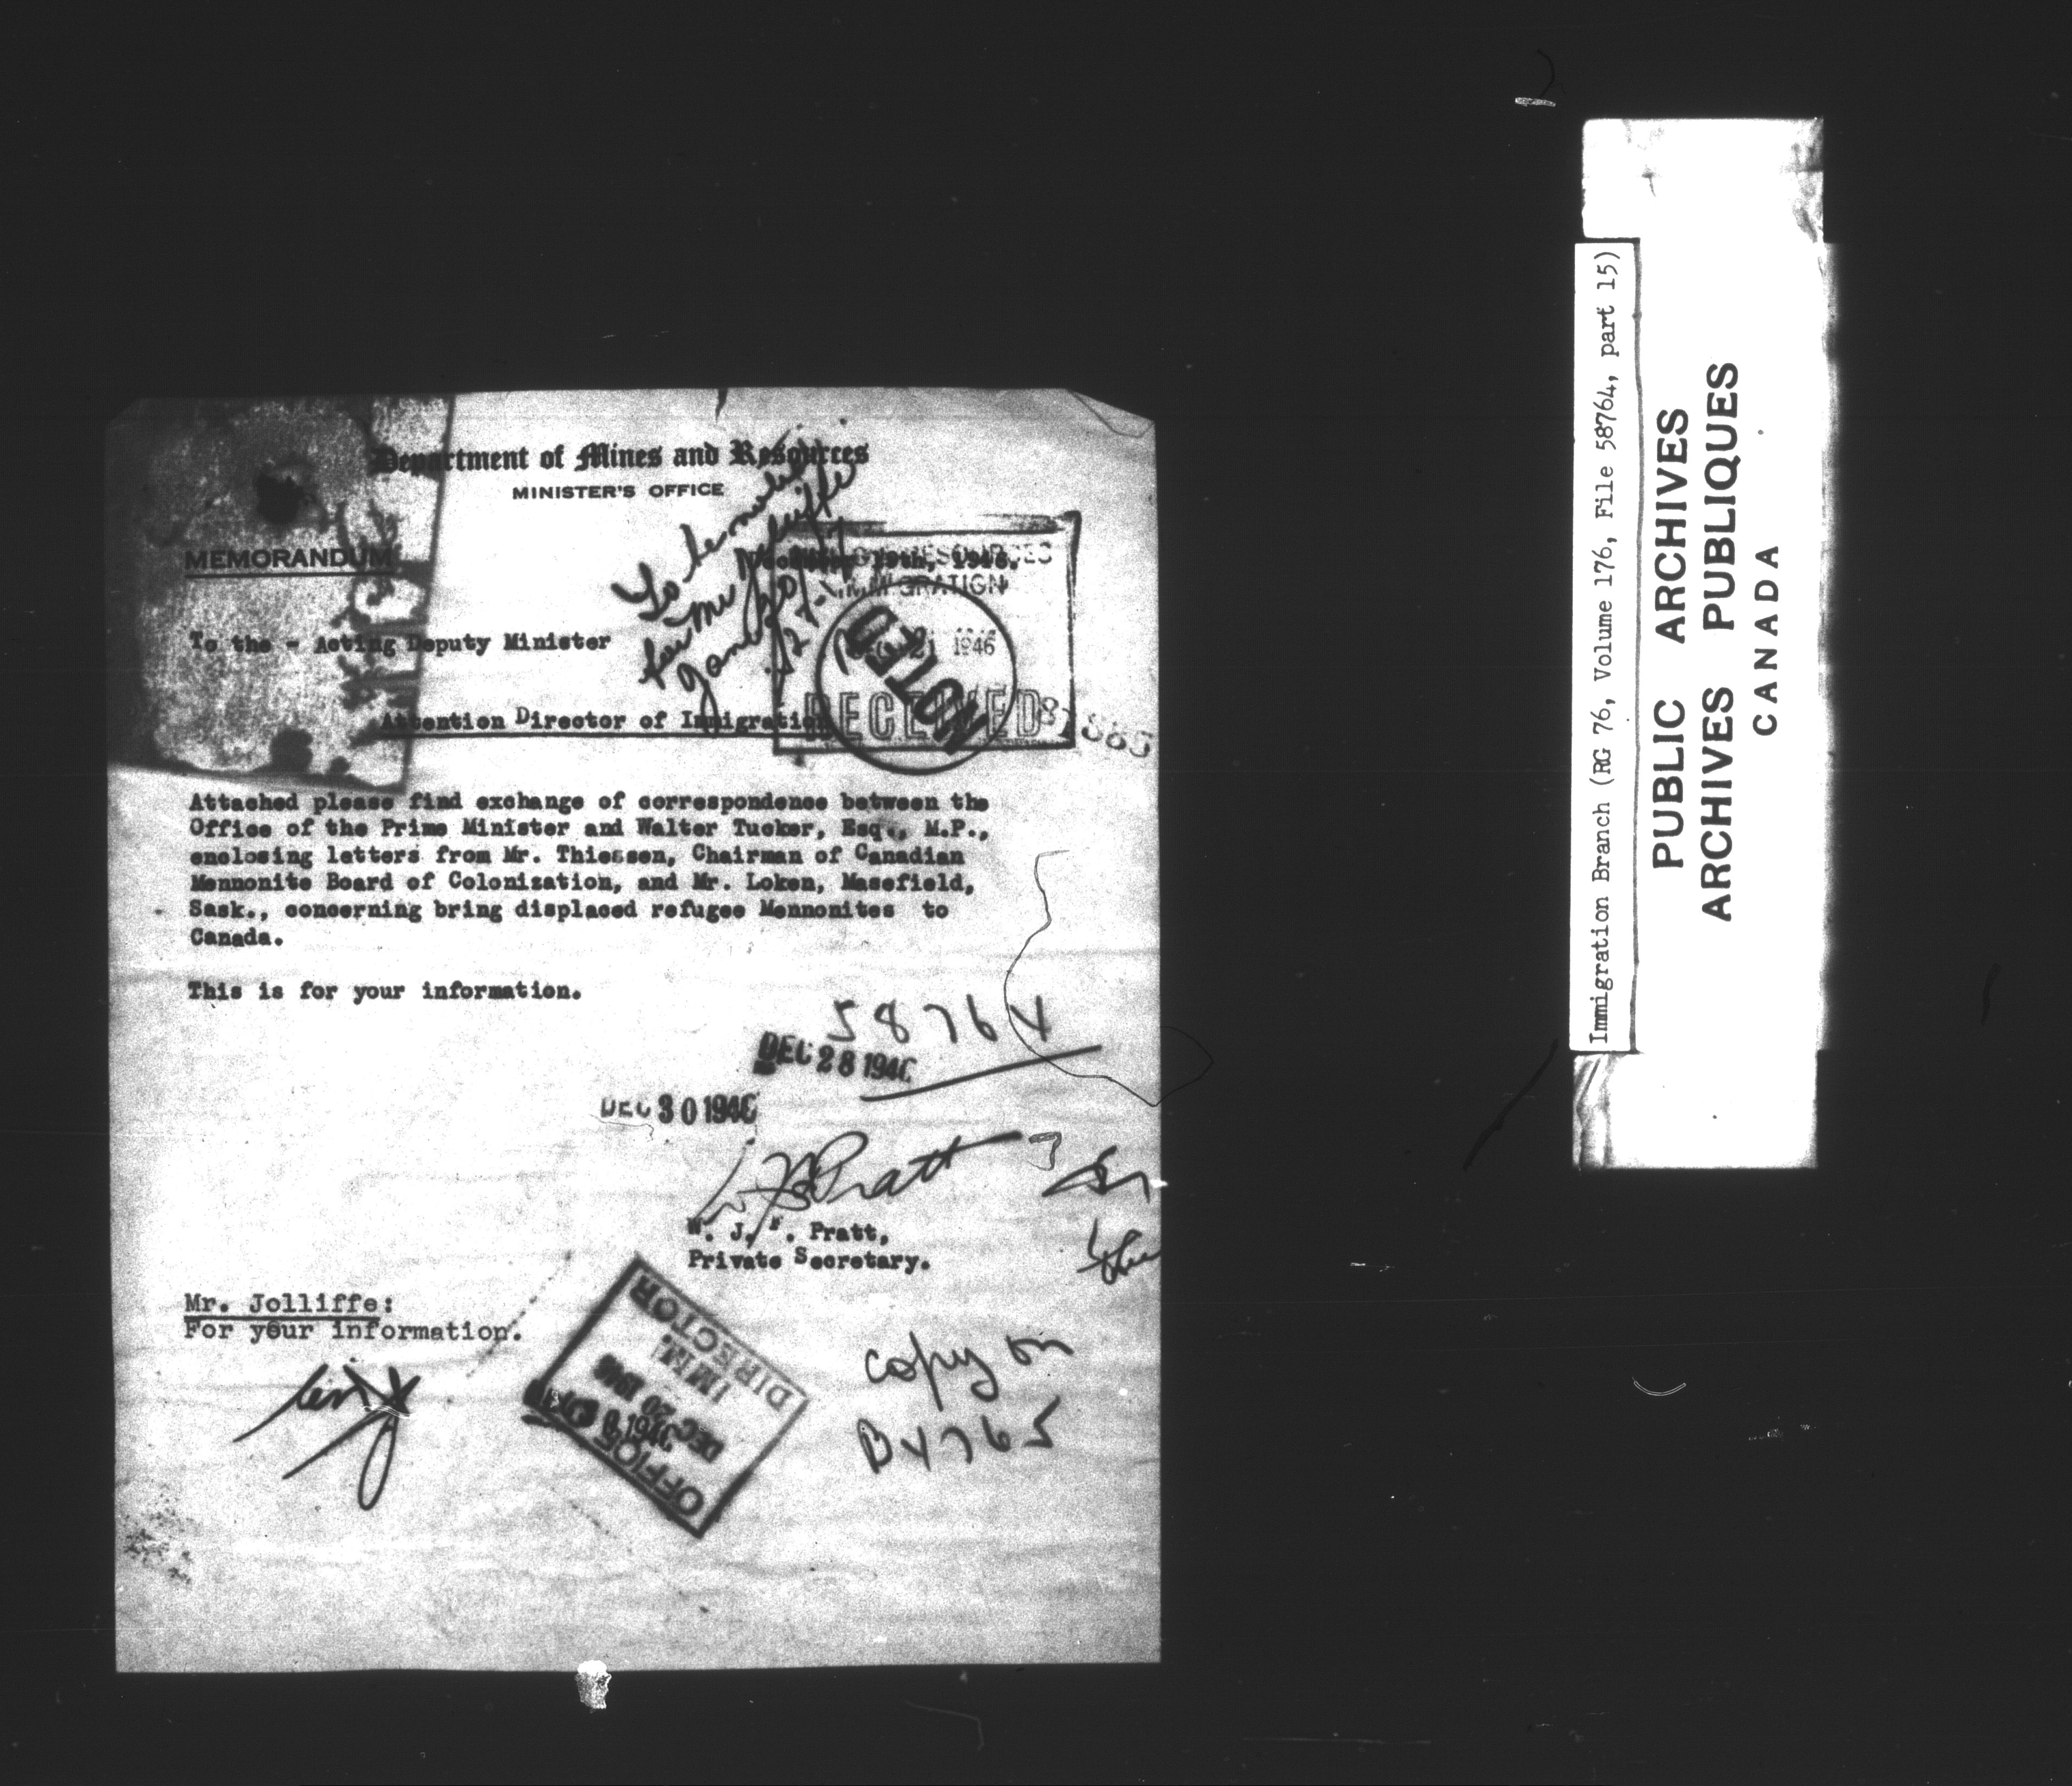 Department of Mines and Resources
MINISTER'S OFFICE
MEMORANDUM
December 19th, 1946.
To the - Acting Deputy Minister
Attention Director of Immigration
IMMIGRATION
21 1946
RECEIVED
NOTED
Attached please find exchange of correspondence between the
Office of the Prime Minister and Walter Tucker, Esq., M.P.,
enclosing letters from Mr. Thiessen, Chairman of Canadian
Mennonite Board of Colonization, and Mr. Loken, Masefield,
Sask., concerning bring displaced refugee Mennonites to
Canada.
This is for your information.
58764
DEC 28 1946
DEC 30 1946
Pratt
W. J. F. Pratt,
Private Secretary.
Mr. Jolliffe:
For your information.
OFFICE OF
DEC 20 1946
IMM.
DIRECTOR
copy on
B4765
Immigration Branch (RG 76, Volume 176, File 58764, part 15)
PUBLIC ARCHIVES
ARCHIVES PUBLIQUES
CANADA